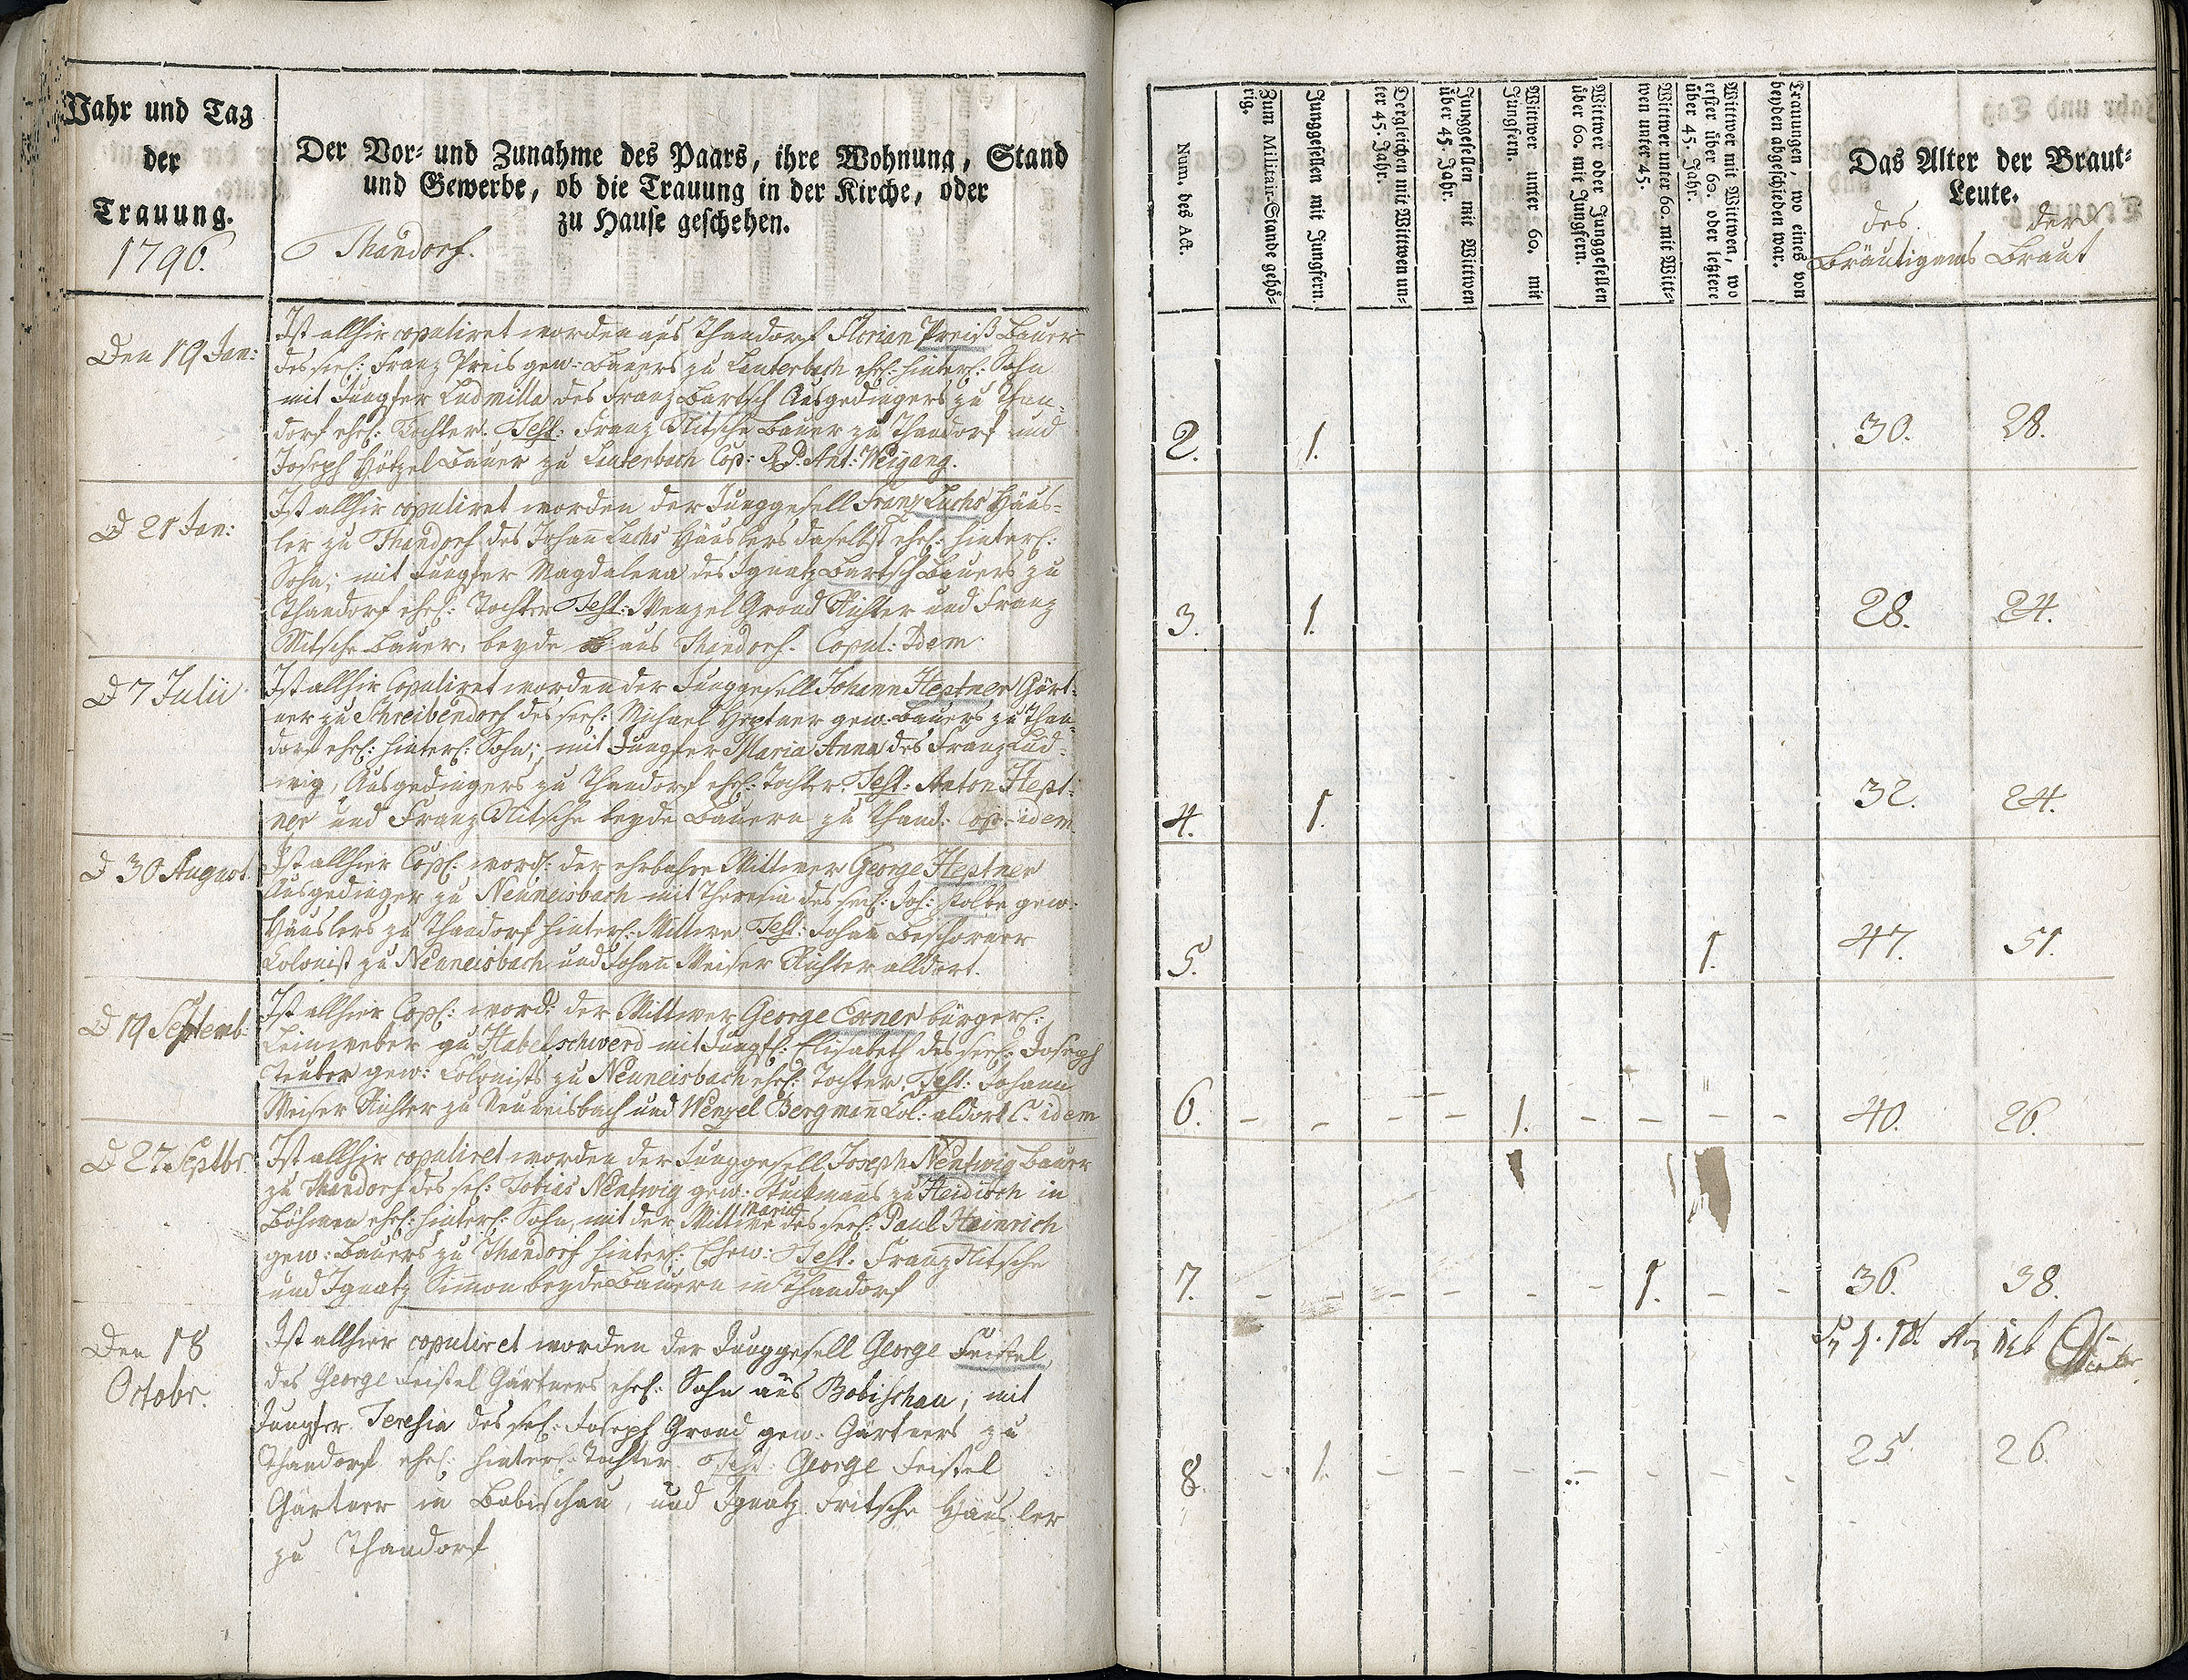 Jahr und Tag
der
Trauung.
1796.
Der Vor- und Zunahme des Paars, ihre Wohnung, Stand
und Gewerbe, ob die Trauung in der Kirche, oder
zu Hause geschehen.
Thandorf.
Den 19 Jan:
Ist allhir copuliret worden aus Thandorf Florian Preiß Bauer
des seel: Franz Preis gew: Bauers zu Lauterbach ehel: hinterl: Sohn
mit Jungfer Ludmilla des Franz Bartsch Ausgedingers zu Than-
dorf ehel: Tochter. Test: Franz Nitsche Bauer zu Thandorf und
Joseph Hötzel Bauer zu Lauterbach Cop: R.P. Ant: Weigang.
D 21 Jan:
Ist allhir copuliret worden der Junggesell Franz Lachs Häus-
ler zu Thandorf des Johan Lachs Häuslers daselbst ehel: hinterl:
Sohn; mit Jungfer Magdalena des Ignatz Bartsch Bauers zu
Thandorf ehel: Tochter Test: Wenzel Grond Richter und Franz
Nitsche Bauer, beyde aus Thandorf. Copul: Idem
D 7 Julii
Ist allhir Copuliret worden der Junggesell Johann Heptner Gärt-
ner zu Schreibendorf des seel: Michael Heptner gew: Bauers zu Than-
dorf ehel: hinterl: Sohn; mit Jungfer Maria Anna des Franz Lud-
wig, Ausgedingers zu Thandorf ehel: Tochter. Test: Anton Hept-
ner und Franz Nitsche beyde Bauern zu Thand: Cop: idem
D 30 August.
Ist allhier Copl: word: der ehrbahre Wittwer George Heptner
Ausgedinger zu Neuneisbach mit Theresia des seel: Joh: Stolbe gew:
Häuslers zu Thandorf hinterl: Wittwe Test: Johan Beschorner
Colonist zu Neuneisbach und Johan Weiser Richter alldort.
D 19 Septemb:
Ist allhier Copl: word: der Wittwer George Exner bürgerl:
Leinweber zu Habelschwerd mit Jungf: Elisabeth des seel: Joseph
Teuber gew: Colonists zu Neuneisbach ehel: Tochter. Test: Johann
Weiser Richter zu Neuneisbach und Wenzel Bergman Col: aldort C. idem
D 27 Septbr.
Ist allhir copuliret worden der Junggesell Joseph Nentwig Bauer
zu Thandorf des sel: Tobias Nentwig gew: Stuckmans zu Heidisch in
Böhmen ehel: hinterl: Sohn, mit der Wittwe Maria des seel: Paul Heinrich
gew: Bauers zu Thandorf hinterl: Ehew: Test: Franz Nitsche
und Ignatz Simon beyde Bauern in Thandorf
Den 18
Octobr.
Ist allhier copuliret worden der Junggesell George Feistel,
des George Feistel Gärtners ehel: Sohn aus Bobischau; mit
Jungfer Teresia des sel: Joseph Grond gew: Gärtners zu
Thandorf ehel: hinterl: Tochter. Test: George Feistel
Gärtner in Bobischau, und Ignatz Fritsche Häusler
zu Thandorf
Num. des Act.
Zum Militair-Stande gehö-
rig.
Junggesellen mit Jungfern.
Dergleichen mit Wittwen un-
ter 45. Jahr.
Junggesellen mit Wittwen
über 45. Jahr.
Wittwer unter 60. mit
Jungfern.
Wittwer oder Junggesellen
über 60. mit Jungfern.
Wittwer unter 60. mit Witt-
wen unter 45.
Wittwer mit Wittwen, wo
erster über 60. oder letztere
über 45. Jahr.
Trauungen, wo eines von
beyden abgeschieden war.
Das Alter der Braut-
Leute.
des der
Bräutigams Braut
2. 1. 30. 28.
3. 1. 28. 24.
4. 1. 32. 24.
5. 1. 47. 51.
6. - - - - 1. - - - - 40. 26.
7. - - - - - - 1. - - 36. 38.
8. - 1. - - - - - - - 25 26.